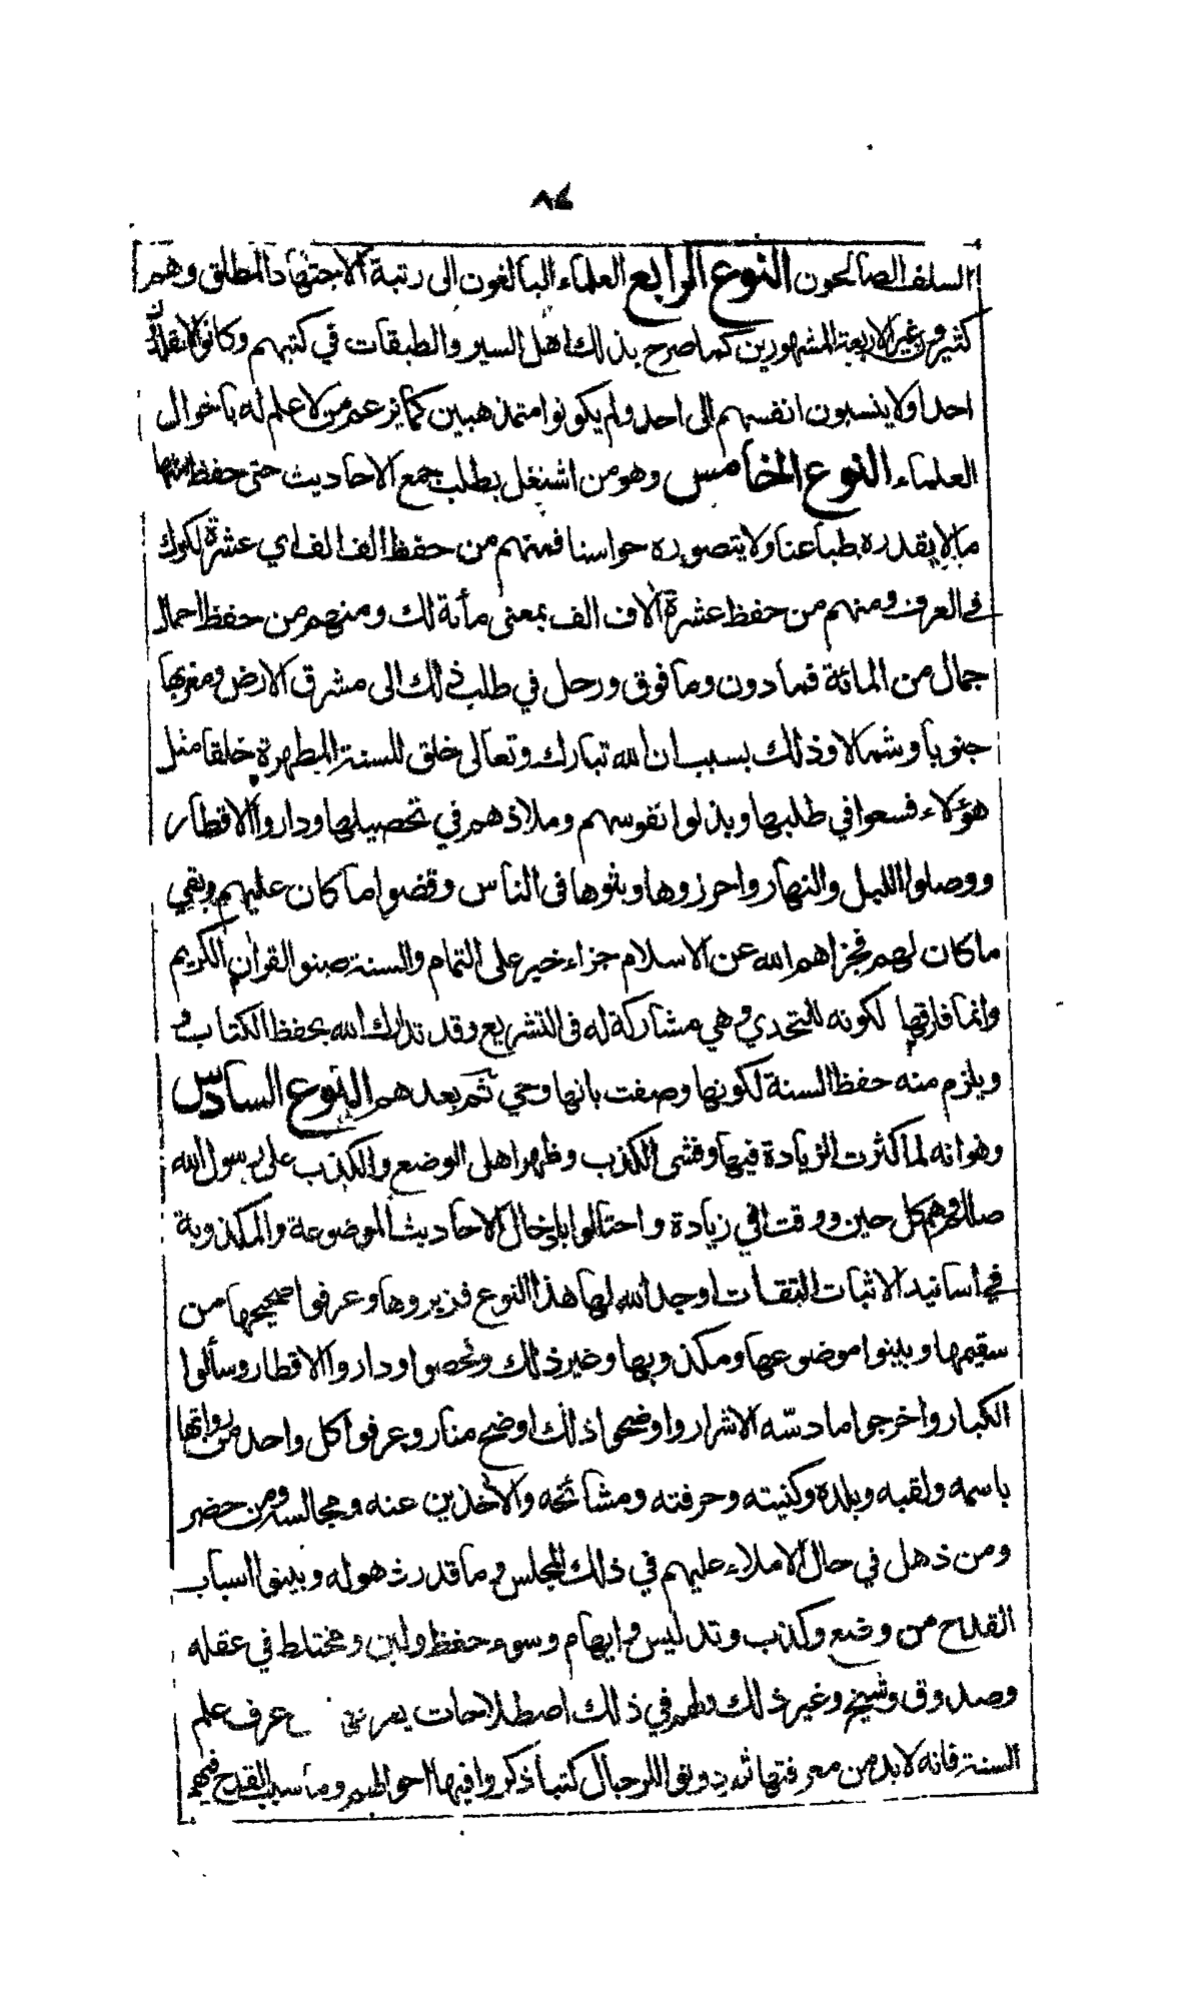 ٨٤
السلف الصالحون النوع الرابع العلماء البالغون الى رتبة الاجتهاد المطلق وهم
كثيرون غير الاربعة المشهورين كما صرح بذلك اهل السير والطبقات في كتبهم وكانوا لا يقلدون
احدا ولا ينسبون انفسهم الى احد ولم يكونوا متمذهبين كما يزعم من لا علم له باحوال
العلماء النوع الخامس وهو من اشتغل بطلب جمع الاحاديث حتى حفظ منها
ما لا يقدره طباعنا ولا يتصوره حواسنا فمنهم من حفظ الف الف اي عشرة لكوك
في العرف ومنهم من حفظ عشرة الاف الف بمعنى مأة لك ومنهم من حفظ احمال
جمال من المائة فما دون وما فوق ورحل في طلب ذلك الى مشرق الارض ومغربها
جنوبا وشمالا وذلك بسبب ان الله تبارك وتعالى خلق للسنة المطهرة خلقا مثل
هؤلاء فسعوا في طلبها وبذلوا نفوسهم وملاذهم في تحصيلها وداروا الاقطار
ووصلوا الليل والنهار واحرزوها وبثوها في الناس وقضوا ما كان عليهم وبقي
ما كان لهم فجزاهم الله عن الاسلام جزاء خير على التمام والسنة صنو القران الكريم
وانما فارقها لكونه للتحدي وهي مشاركة له في التشريع وقد تدارك الله بحفظ الكتاب
ويلزم منه حفظ السنة لكونها وصفت بانها وحي ثم بعدهم النوع السادس
وهو انه لما كثرت الزيادة فيها وفشى الكذب وظهر اهل الوضع والكذب على رسول الله
صللم وهم كل حين ووقت في زيادة واحتالوا بادخال الاحاديث الموضوعة والمكذوبة
في اسانيد الاثبات الثقات اوجد الله لها هذا النوع فزبروها وعرفوا صحيحها من
سقيمها وبينوا موضوعها ومكذوبها وغير ذلك وفحصوا وداروا الاقطار وسألوا
الكبار واخرجوا ما دسّه الاشرار واوضحوا ذلك اوضح منار وعرفوا كل واحد من رواتها
باسمه ولقبه وبلده وكنيته وحرفته ومشائخه والآخذين عنه ومجالسه ومن حضر
ومن ذهل في حال الاملاء عليهم في ذلك المجلس وما قدر ذهوله وبينوا اسباب
القدح من وضع وكذب وتدليس وايهام وسوء حفظ ولين ومختلط في عقله
وصدوق وشيخ وغير ذلك ولهم في ذلك اصطلاحات عرف علم
السنة فانه لا بد من معرفتها ثم دونوا للرجال كتبا ذكروا فيها احوالهم وما سبب القدح فيهم